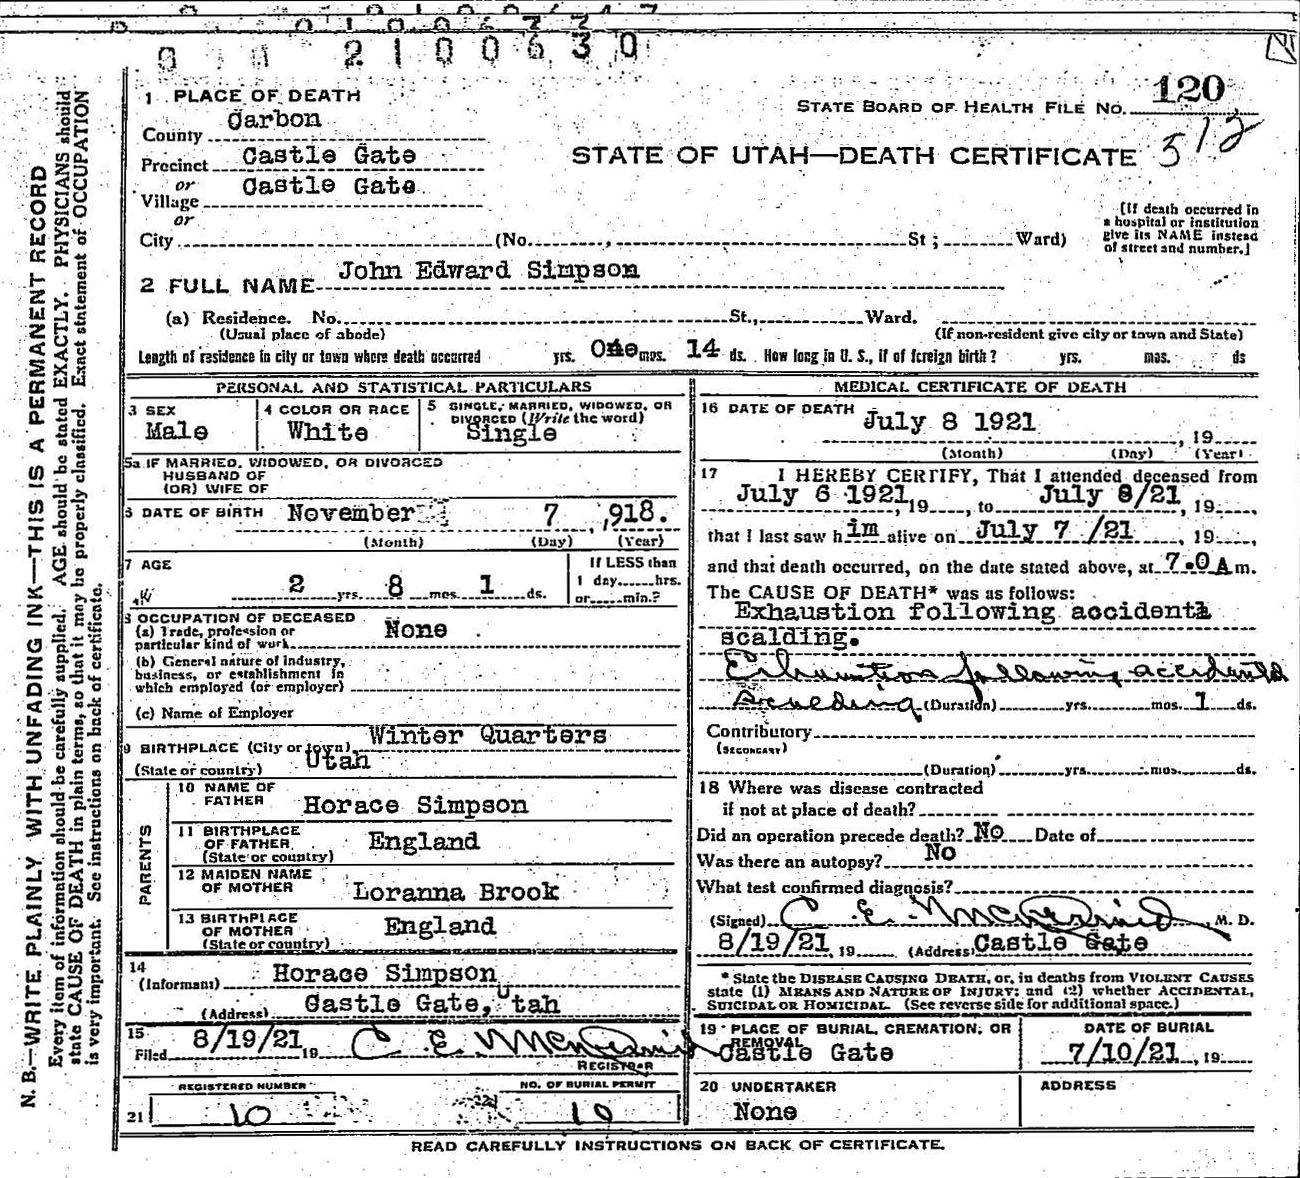 0 0 2100630
1 PLACE OF DEATH
County Carbon
Precinct Castle Gate
or
Village Castle Gate
or
City (No. , St ; Ward)
STATE BOARD OF HEALTH FILE NO. 120
STATE OF UTAH—DEATH CERTIFICATE 512
[If death occurred in
a hospital or institution
give its NAME instead
of street and number.]
2 FULL NAME John Edward Simpson
(a) Residence. No. St., Ward.
(Usual place of abode) (If non-resident give city or town and State)
Length of residence in city or town where death occurred yrs. One mos. 14 ds. How long in U. S., if of foreign birth? yrs. mos. ds
PERSONAL AND STATISTICAL PARTICULARS
3 SEX
Male
4 COLOR OR RACE
White
5 SINGLE, MARRIED, WIDOWED, OR
DIVORCED (Write the word)
Single
5a IF MARRIED, WIDOWED, OR DIVORCED
HUSBAND OF
(OR) WIFE OF
6 DATE OF BIRTH November 7 ,918.
(Month) (Day) (Year)
7 AGE
2 yrs. 8 mos. 1 ds.
If LESS than
1 day, hrs.
or min.?
8 OCCUPATION OF DECEASED
(a) Trade, profession or
particular kind of work None
(b) General nature of industry,
business, or establishment in
which employed (or employer)
(c) Name of Employer
9 BIRTHPLACE (City or town) Winter Quarters
(State or country) Utah
PARENTS
10 NAME OF
FATHER Horace Simpson
11 BIRTHPLACE
OF FATHER England
(State or country)
12 MAIDEN NAME
OF MOTHER Loranna Brook
13 BIRTHPLACE
OF MOTHER England
(State or country)
14
(Informant) Horace Simpson
(Address) Castle Gate, Utah
15
Filed 8/19/21 19
REGISTRAR
REGISTERED NUMBER
NO. OF BURIAL PERMIT
21 10 10
MEDICAL CERTIFICATE OF DEATH
16 DATE OF DEATH July 8 1921
, 19
(Month) (Day) (Year)
17 I HEREBY CERTIFY, That I attended deceased from
July 6 1921, 19 , to July 8/21 , 19 ,
that I last saw him alive on July 7 /21 , 19 ,
and that death occurred, on the date stated above, at 7.0 A m.
The CAUSE OF DEATH* was as follows:
Exhaustion following accidentl
scalding.
Exhaustion following accidental
scalding (Duration) yrs. mos. 1 ds.
Contributory
(SECONDARY)
(Duration) yrs. mos. ds.
18 Where was disease contracted
if not at place of death?
Did an operation precede death? No Date of
Was there an autopsy? No
What test confirmed diagnosis?
(Signed) C. E. M. D.
8/19/21, 19 (Address) Castle Gate
* State the DISEASE CAUSING DEATH, or, in deaths from VIOLENT CAUSES
state (1) MEANS AND NATURE OF INJURY; and (2) whether ACCIDENTAL,
SUICIDAL OR HOMICIDAL. (See reverse side for additional space.)
19 PLACE OF BURIAL, CREMATION, OR
REMOVAL
Castle Gate
DATE OF BURIAL
7/10/21 , 19
20 UNDERTAKER
None
ADDRESS
READ CAREFULLY INSTRUCTIONS ON BACK OF CERTIFICATE.
N. B.—WRITE PLAINLY, WITH UNFADING INK—THIS IS A PERMANENT RECORD
Every item of information should be carefully supplied. AGE should be stated EXACTLY. PHYSICIANS should
state CAUSE OF DEATH in plain terms, so that it may be properly classified. Exact statement of OCCUPATION
is very important. See instructions on back of certificate.